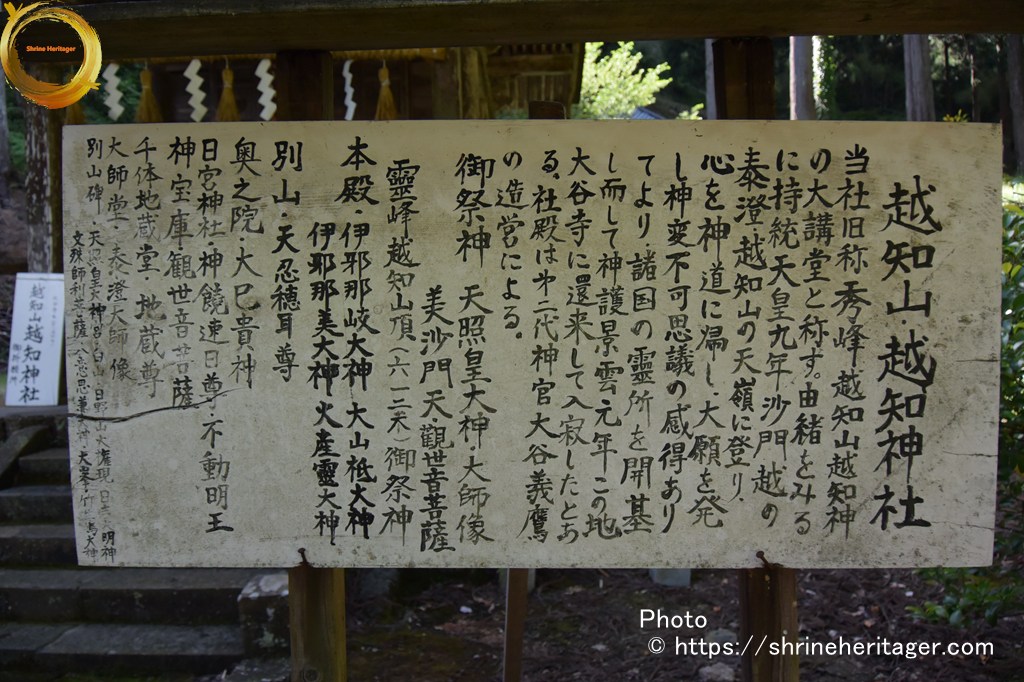 越知山・越知神社
当社旧称秀峰越知山越知神
の大講堂と称す。由緒をみる
に持統天皇九年沙門越の
泰澄・越知山の天嶺に登り
心を神道に帰し、大願を発
し神変不可思議の感得あり
てより・諸国の靈所を開基
し而して神護景雲元年この地
大谷寺に還来して入寂したとあ
る。社殿は第二代神官大谷義鷹
の造営による。
御祭神 天照皇大神・大師像
美沙門天・觀世音菩薩
靈峰越知山頂(六一二米)御祭神
本殿・伊邪那岐大神 大山祇大神
伊邪那美大神 火産靈大神
別山・天忍穂耳尊
奥之院・大巳貴神
日宮神社・神饒速日尊・不動明王
神宝庫観世音菩薩
千体地蔵堂・地蔵尊
大師堂・泰澄大師像
別山碑・天照皇大神宮・白山・日野山大権現 明神
文殊師利菩薩
越知山越知神社
Shrine Heritager
Photo
© https://shrineheritager.com